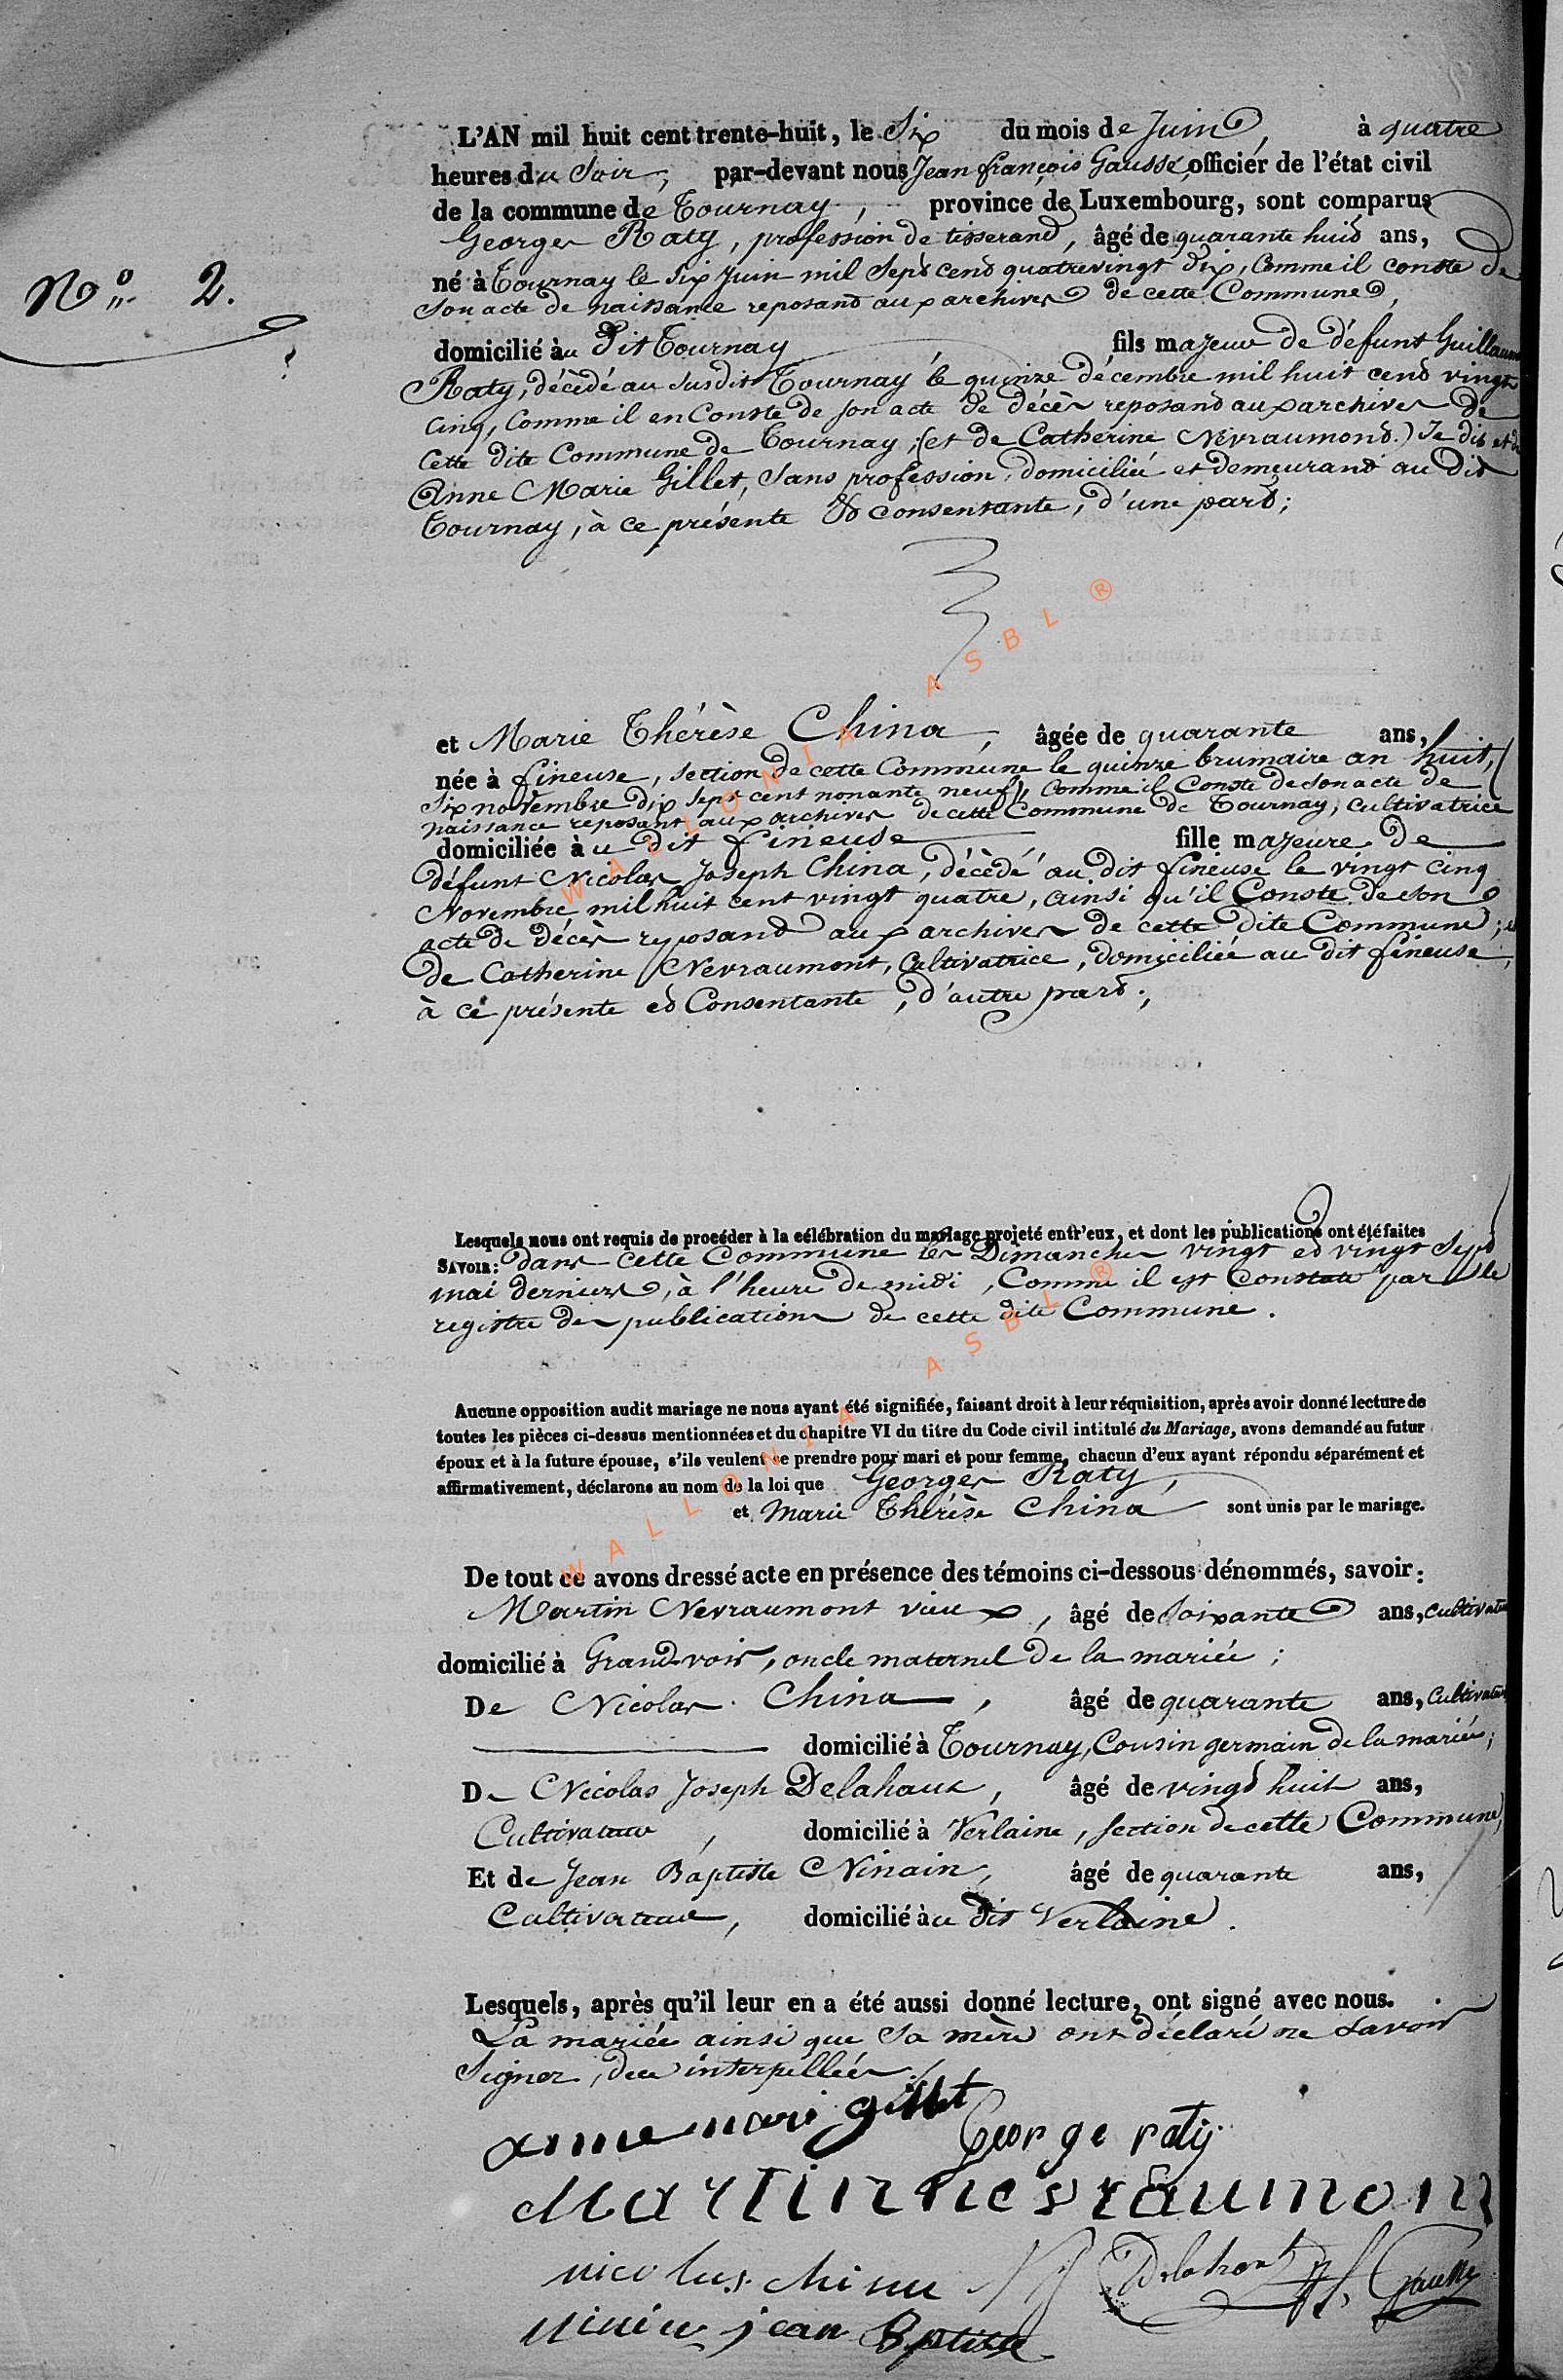 L'AN mil huit cent trente-huit, le Six du mois de Juin, à quatre
heures du Soir, par-devant nous Jean françois Gausse, officier de l'état civil
de la commune de Tournay, province de Luxembourg, sont comparus
Georges Raty, profession de tisserand, âgé de quarante huit ans,
N.° 2.
né à Tournay le Six Juin mil Sept Cent quatrevingt dix, Comme il conste de
Son acte de naissance reposant aux archives de cette Commune,
domicilié au Dit Tournay fils majeur de défunt Guillaume
Raty, décèdé au susdit Tournay le quinze décembre mil huit cent vingt
Cinq, Comme il en Conste de son acte de décès reposant aux archives de
Cette dite Commune de Tournay; (et de Catherine Nevraumont.) Je dis et de
Anne Marie Gillet, Sans profession, domiciliée et demeurant au Dit
Tournay, à ce présente & consentante, d'une part;
et Marie Thérèse China, âgée de quarante ans,
née à fineuse, section de cette Commune le quinze brumaire an huit, (
Six novembre dix sept cent nonante neuf), Comme il Conste de son acte de
naissance reposant aux archives de cette Commune de Tournay, Cultivatrice
domiciliée au dit fineuse fille majeure de
défunt Nicolas Joseph China, décèdé au dit fineuse le vingt cinq
Novembre mil huit cent vingt quatre, ainsi qu'il Conste de son
acte de décès reposant aux archives de cette dite Commune; et
de Catherine Nevraumont, Cultivatrice, domiciliée au dit fineuse,
à ce présente et Consentante, d'autre part.,
Lesquels nous ont requis de procéder à la célébration du mariage projeté entr'eux, et dont les publications ont été faites
SAVOIR: dans cette Commune les Dimanches vingt et vingt Sept
mai derniers, à l'heure de midi, Comme il est Constaté par le
registre des publications de cette dite Commune.
Aucune opposition audit mariage ne nous ayant été signifiée, faisant droit à leur réquisition, après avoir donné lecture de
toutes les pièces ci-dessus mentionnées et du chapitre VI du titre du Code civil intitulé du Mariage, avons demandé au futur
époux et à la future épouse, s'ils veulent se prendre pour mari et pour femme, chacun d'eux ayant répondu séparément et
affirmativement, déclarons au nom de la loi que Georges Raty,
et Marie Thérèse China sont unis par le mariage.
De tout ce avons dressé acte en présence des témoins ci-dessous dénommés, savoir:
Martin Nevraumont vieux, âgé de Soixante ans, cultivateur
domicilié à Grandvoir, oncle maternel de la mariée;
De Nicolas China, âgé de quarante ans, Cultivateur
domicilié à Tournay, Cousin germain de la mariée;
De Nicolas Joseph Delahaut, âgé de vingt huit ans,
Cultivateur, domicilié à Verlaine, section de cette Commune,
Et de Jean Baptiste Ninain, âgé de quarante ans,
Cultivateur, domicilié au dit Verlaine.
Lesquels, après qu'il leur en a été aussi donné lecture, ont signé avec nous.
La mariée ainsi que Sa mère ont déclaré ne Savoir
Signer, de ce interpellées.
anne mari gillet
George raty
Martin nevraumont
nicolas china NJ Delahaut J. f. Gausse
ninin jean Bptiste
WALLONIA ASBL ®
WALLONIA ASBL ®